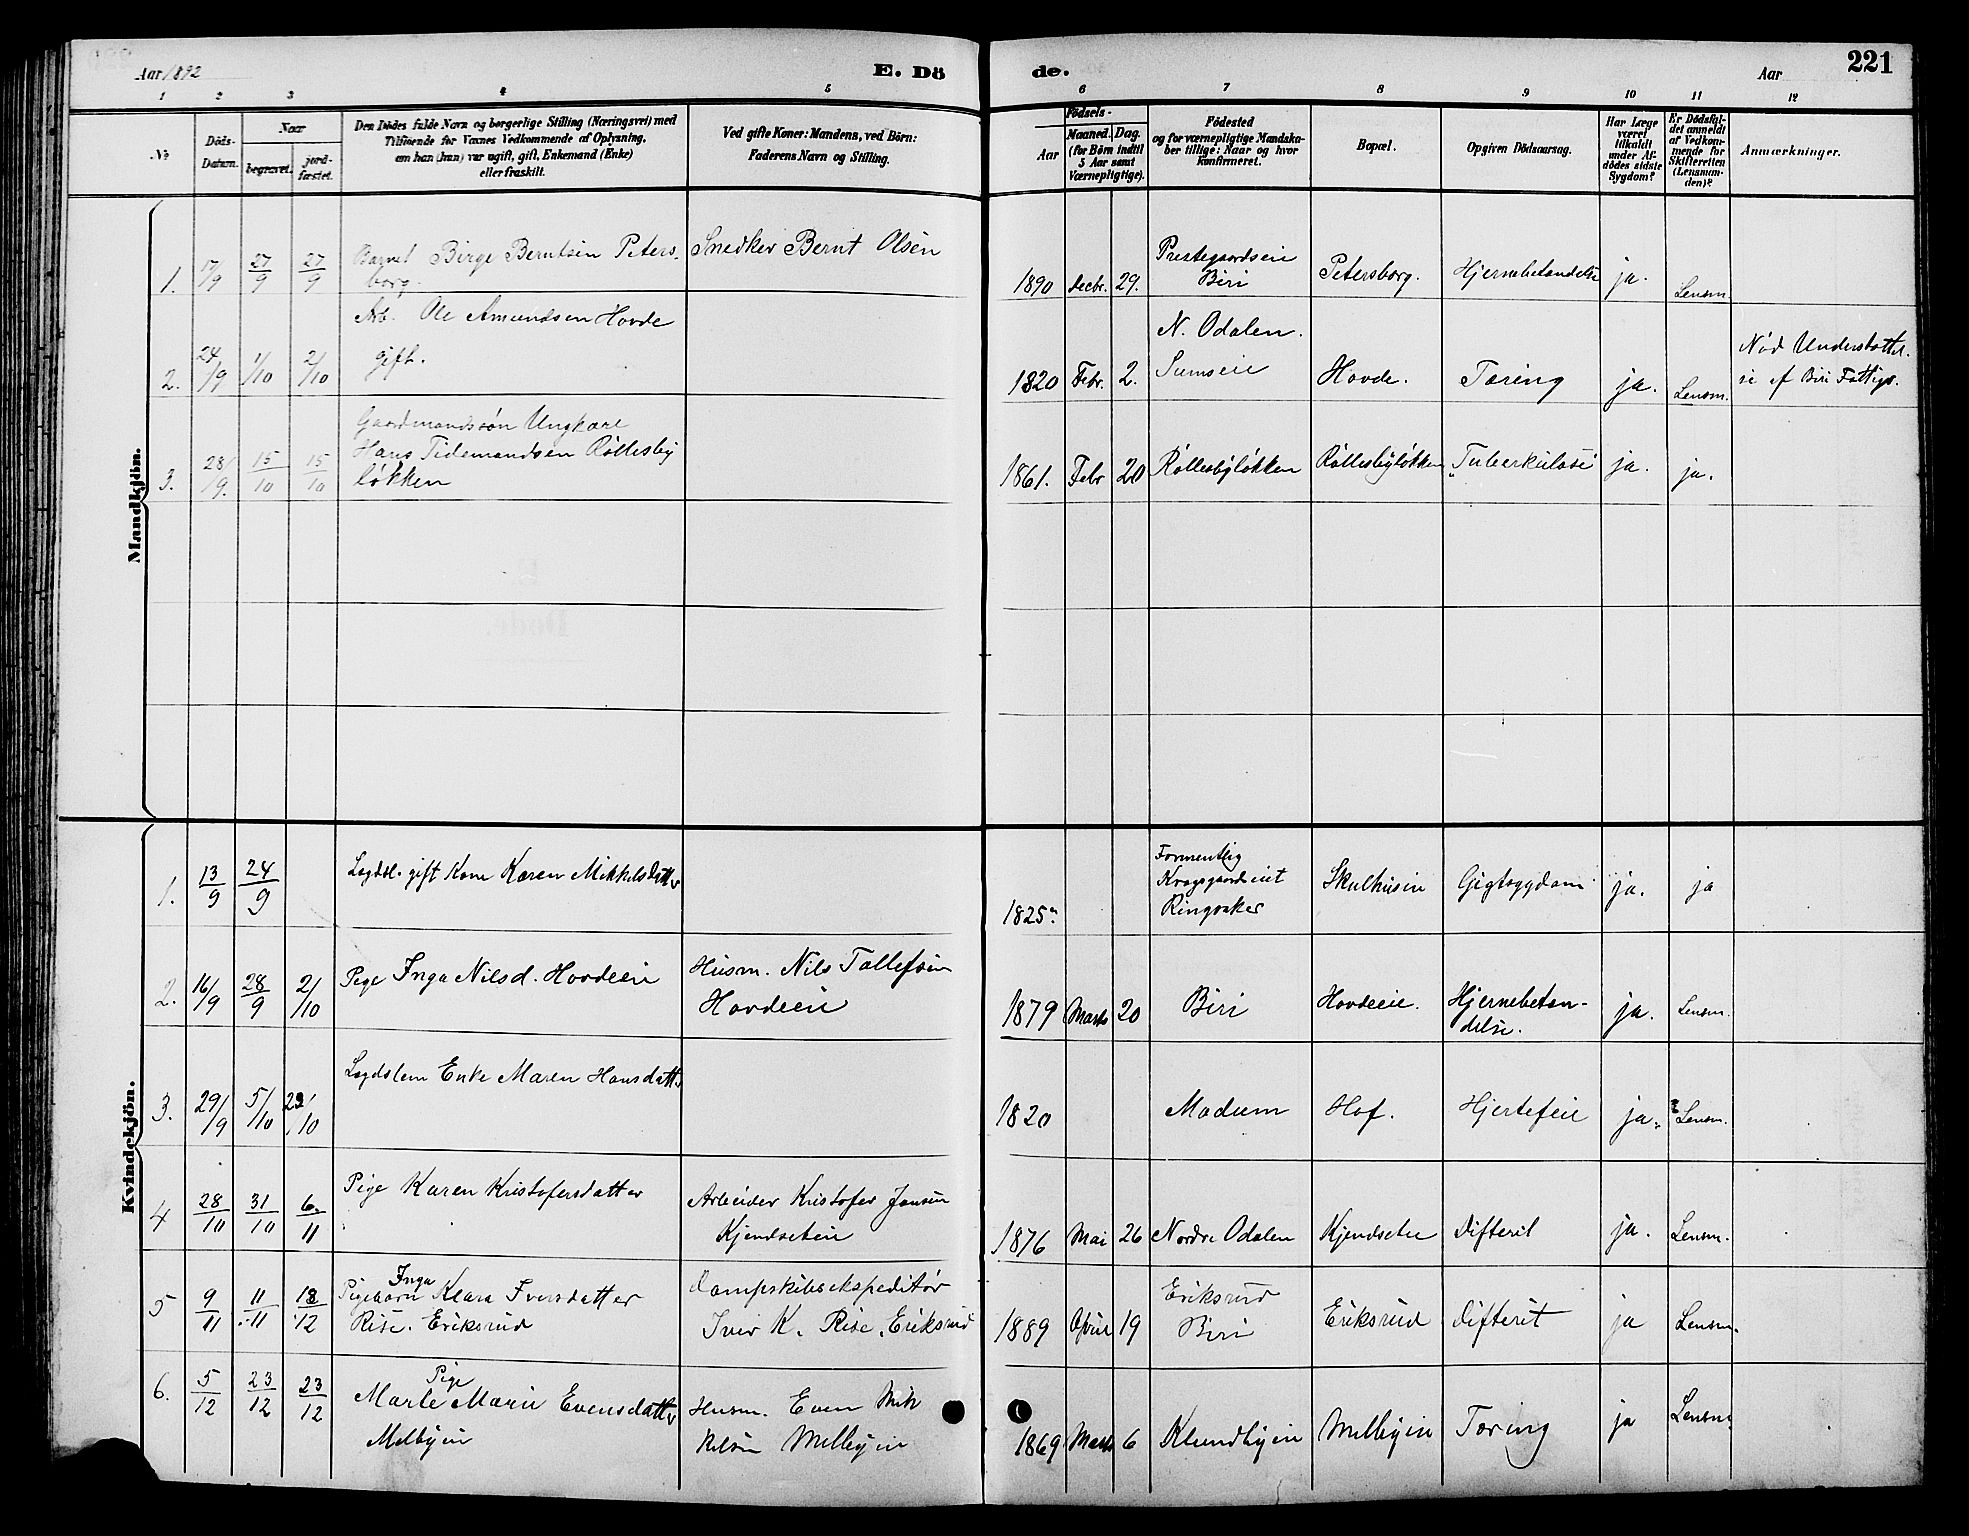 Aar 1892
E. Dö de.
Aar
221
1 2 3 4 5 6 7 8 9 10 11 12
No
Döds-
Datum.
Naar
begravet.
jord-
fæstet.
Den Dödes fulde Navn og borgerlige Stilling (Næringsvei) med
Tilföiende for Voxnes Vedkommende af Oplysning,
om han (hun) var ugift, gift, Enkemand (Enke)
eller fraskilt.
Ved gifte Koner: Mandens, ved Börn:
Faderens Navn og Stilling.
Födsels-
Aar
Maaned. Dag.
(for Börn indtil
5 Aar samt
Værnepligtige).
Födested
og for værnepligtige Mandska-
ber tillige: Naar og hvor
konfirmeret.
Bopæl.
Opgiven Dödsaarsag.
Har Læge
været
tilkaldt
under Af-
dödes sidste
Sygdom?
Er Dödsfal-
det anmeldt
af Vedkom-
mende for
Skifteretten
(Lensman-
den)?
Anmærkninger.
Mandkjön.
1. 17/9 27/9 27/9 Barnet Birge Berntsen Peters-
borg.
Snedker Bernt Olsen
1890 Decbr. 29.
Prestegaardseie
Biri
Petersborg. Hjernebetændelse ja. Lensm.
2. 24/9 1/10 2/10 Arb. Ole Amundsen Hovde
gift.
1820 Febr. 2.
N. Odalen.
Sumseie
Hovde. Tæring ja. Lensm.
Nød Understøttel-
se af Biri Fattigv.
3. 28/9. 15/10 15/10 Gaardmandssøn Ungkarl
Hans Tidemandsen Røllesby
løkken
1861. Febr 20 Røllesbyløkken Røllesbyløkken "Tuberkulose" ja. ja.
Kvindekjön.
1. 13/9 24/9 Lægdsl. gift Kone Karen Mikkelsdatter
1825
Formentlig
Kragsgaardeiet
Ringsaker
Skulhusin Gigtsygdom ja. ja
2. 16/9 28/9 2/10 Pige Inga Nilsd. Hovdeeie
Husm. Nils Tollefsen
Hovdeeie
1879 Marts 20 Biri Hovdeeie. Hjernebetæn-
delse.
ja. Lensm.
3. 29/9 5/10 /10 Lægdslem Enke Maren Hansdatter
1820 Modum Hof. Hjertefeil ja. Lensm.
4 28/10 31/10 6/11 Pige Karen Kristofersdatter
Arbeider Kristofer Jensen
Kjendseteie
1876 Mai 26 Nordre Odalen Kjendsetee Difterit ja. Lensm.
5 9/11 11/11 18/12 Pigebarn Inga Klara Iversdatter
Rise. Eriksrud
Dampskibsekspeditør
Iver K. Rise, Eriksrud
1889 April 19
Eriksrud
Biri
Eriksrud Difterit ja Lensm.
6. 5/12 23/12 23/12 Pige
Marte Marie Evensdatter
Melbyeie
Husm. Even Mik
kelsen Melbyeie
1869 Marts 6 Klundbyeie Melbyeie Tæring ja Lensm.